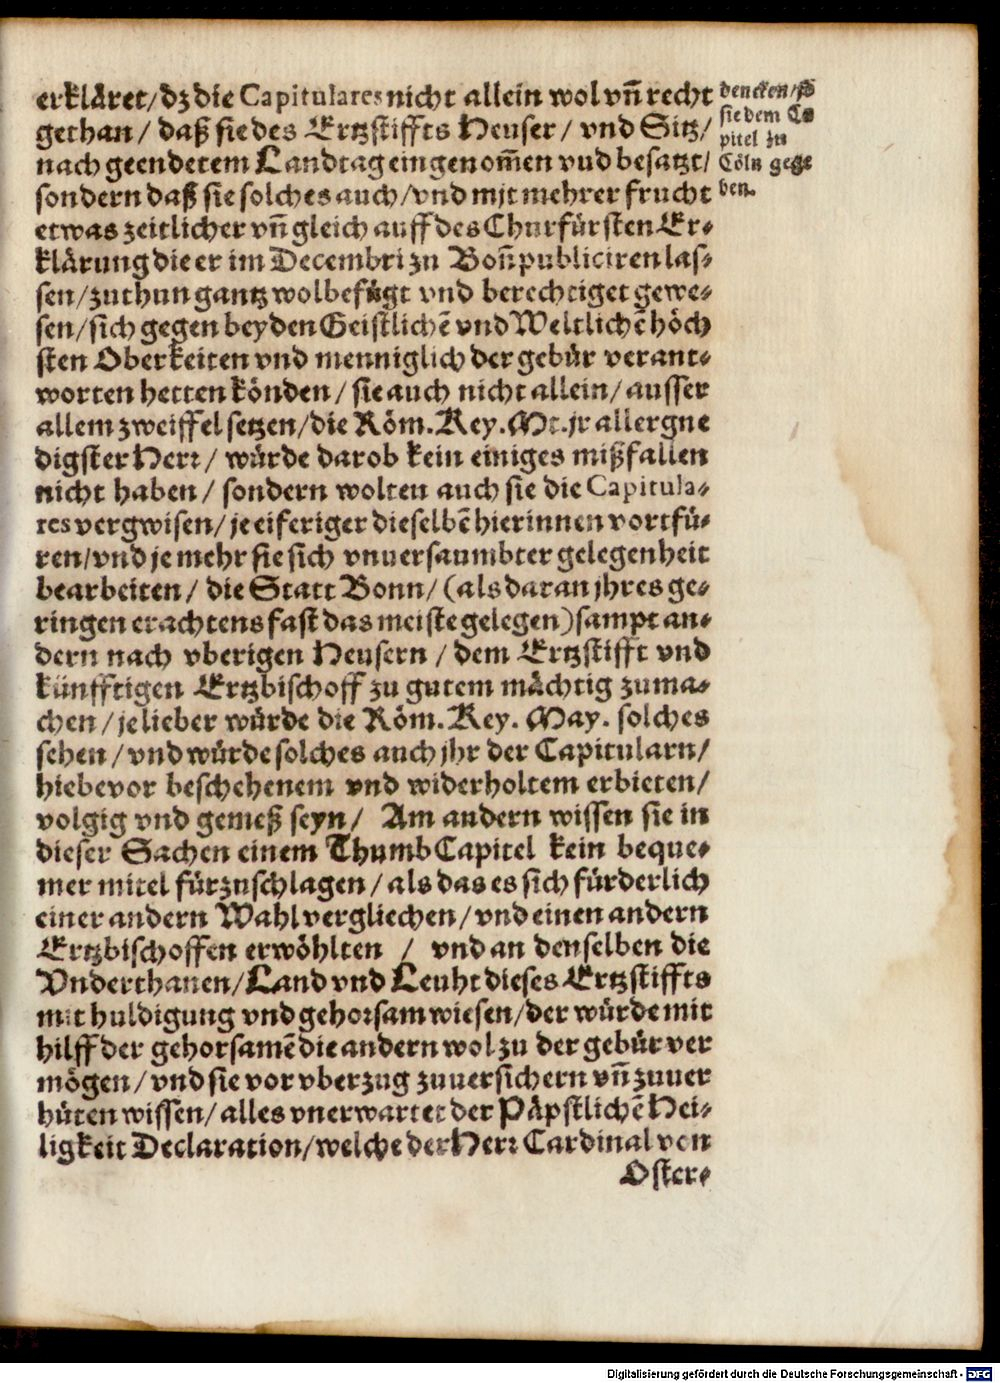 erkläret/dz die Capitulares nicht allein wol vñ recht
gethan/ daß sie des Ertzstiffts Heuser/ vnd Sitz/
nach geendetem Landtag eingenom̃en vud besatzt/
sondern daß sie solches auch/vnd mit mehrer frucht
etwas zeitlicher vñ gleich auff des Churfürsten Er-
klärung die er im Decembri zu Boñ publiciren las-
sen/zuthun gantz wolbefügt vnd berechtiget gewe-
sen/sich gegen beyden Geistlichẽ vnd Weltlichẽ höch
sten Oberkeiten vnd menniglich der gebür verant-
worten hetten könden/ sie auch nicht allein/ ausser
allem zweiffel setzen/die Röm. Key. Mt. jr allergne
digster Herr/ würde darob kein einiges mißfallen
nicht haben/ sondern wolten auch sie die Capitula-
res vergwisen/je eiferiger dieselbẽ hierinnen vortfü-
ren/vnd je mehr sie sich vnuersaumbter gelegenheit
bearbeiten/ die Statt Bonn/ (als daran jhres ge-
ringen erachtens fast das meiste gelegen) sampt an-
dern nach vberigen Heusern/ dem Ertzstifft vnd
künfftigen Ertzbischoff zu gutem mächtig zuma-
chen/je lieber würde die Röm. Key. May. solches
sehen/vnd würde solches auch jhr der Capitularn/
hiebevor beschehenem vnd widerholtem erbieten/
volgig vnd gemeß seyn/ Am andern wissen sie in
dieser Sachen einem Thumb Capitel kein beque-
mer mitel fürzuschlagen/als das es sich fürderlich
einer andern Wahl vergliechen/vnd einen andern
Ertzbischoffen erwöhlten / vnd an denselben die
Vnderthanen/Land vnd Leuht dieses Ertzstiffts
mit huldigung vnd gehorsam wiesen/der würde mit
hilff der gehorsamẽ die andern wol zu der gebür ver
mögen/vnd sie vor vberzug zuuersichern vñ zuuer
hüten wissen/alles vnerwartet der Päpstlichẽ Hei-
ligkeit Declaration/welche der Herr Cardinal von
Oster-
dencken/so
sie dem Ca
pitel zu
Cöln gege
ben.
Digitalisierung gefördert durch die Deutsche Forschungsgemeinschaft - DFG